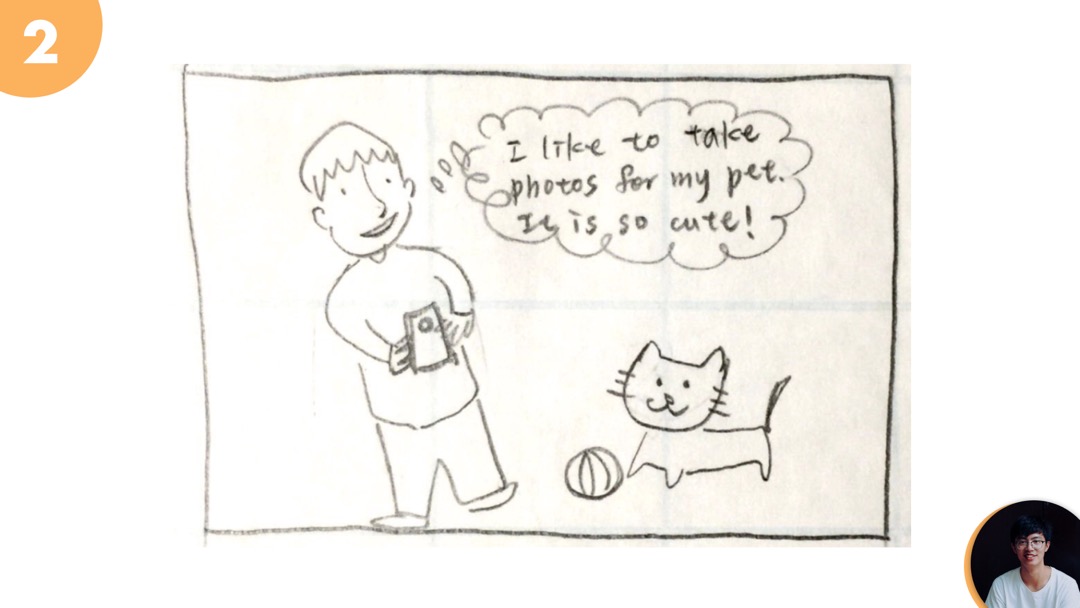 2
I like to take
photos for my pet.
It is so cute!